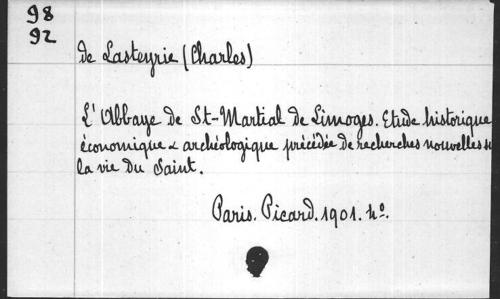 98
92
de Lasteyrie (Charles)
L'Abbaye de St-Martial de Limoges. Etude historique
économique & archéologique précédée de recherches nouvelles s
la vie du Saint.
Paris. Picard. 1901. 4º.